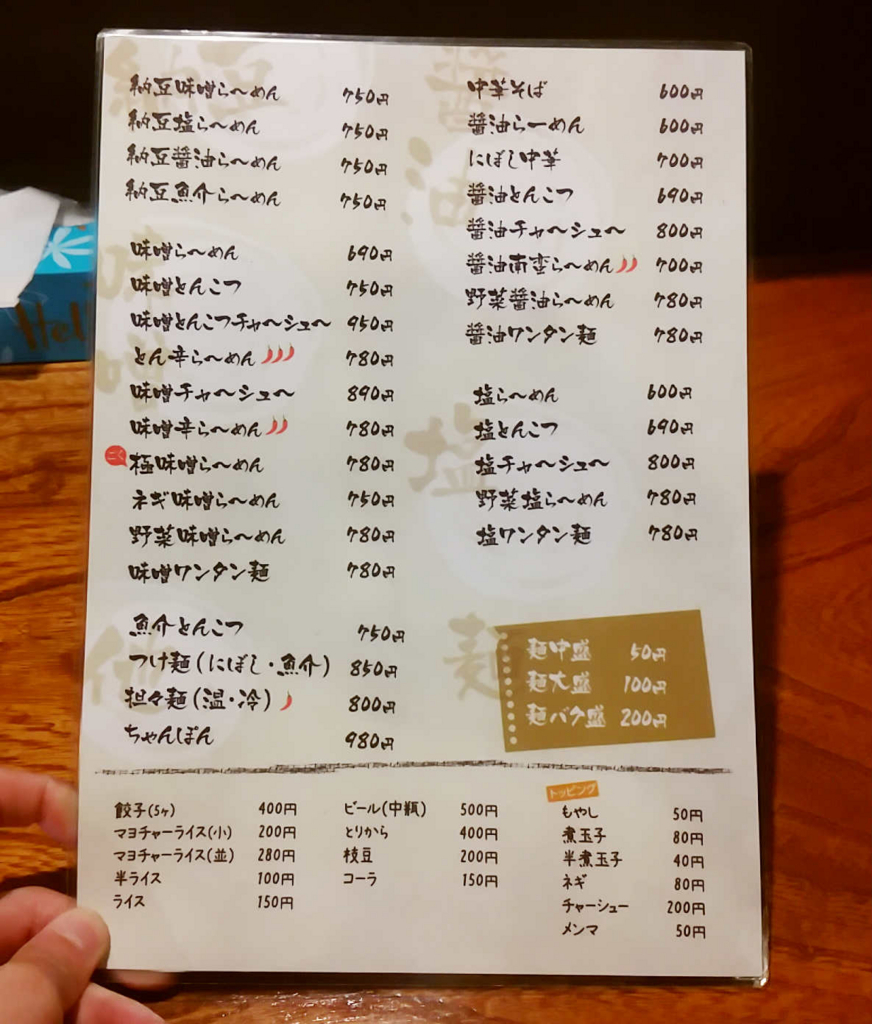 納豆
納豆味噌らーめん 750円
納豆塩らーめん 750円
納豆醤油らーめん 750円
納豆魚介らーめん 750円
味噌
味噌らーめん 690円
味噌とんこつ 750円
味噌とんこつチャーシュー 950円
とん辛らーめん 780円
味噌チャーシュー 890円
味噌辛らーめん 780円
ごく
極味噌らーめん 780円
ネギ味噌らーめん 750円
野菜味噌らーめん 780円
味噌ワンタン麺 780円
他
魚介とんこつ 750円
つけ麺(にぼし・魚介) 850円
担々麺(温・冷) 800円
ちゃんぽん 980円
醤油
中華そば 600円
醤油らーめん 600円
にぼし中華 700円
醤油とんこつ 690円
醤油チャーシュー 800円
醤油南蛮らーめん 700円
野菜醤油らーめん 780円
醤油ワンタン麺 780円
塩
塩らーめん 600円
塩とんこつ 690円
塩チャーシュー 800円
野菜塩らーめん 780円
塩ワンタン麺 780円
麺
麺中盛 50円
麺大盛 100円
麺バク盛 200円
餃子(5ヶ) 400円
マヨチャーライス(小) 200円
マヨチャーライス(並) 280円
半ライス 100円
ライス 150円
ビール(中瓶) 500円
とりから 400円
枝豆 200円
コーラ 150円
トッピング
もやし 50円
煮玉子 80円
半煮玉子 40円
ネギ 80円
チャーシュー 200円
メンマ 50円